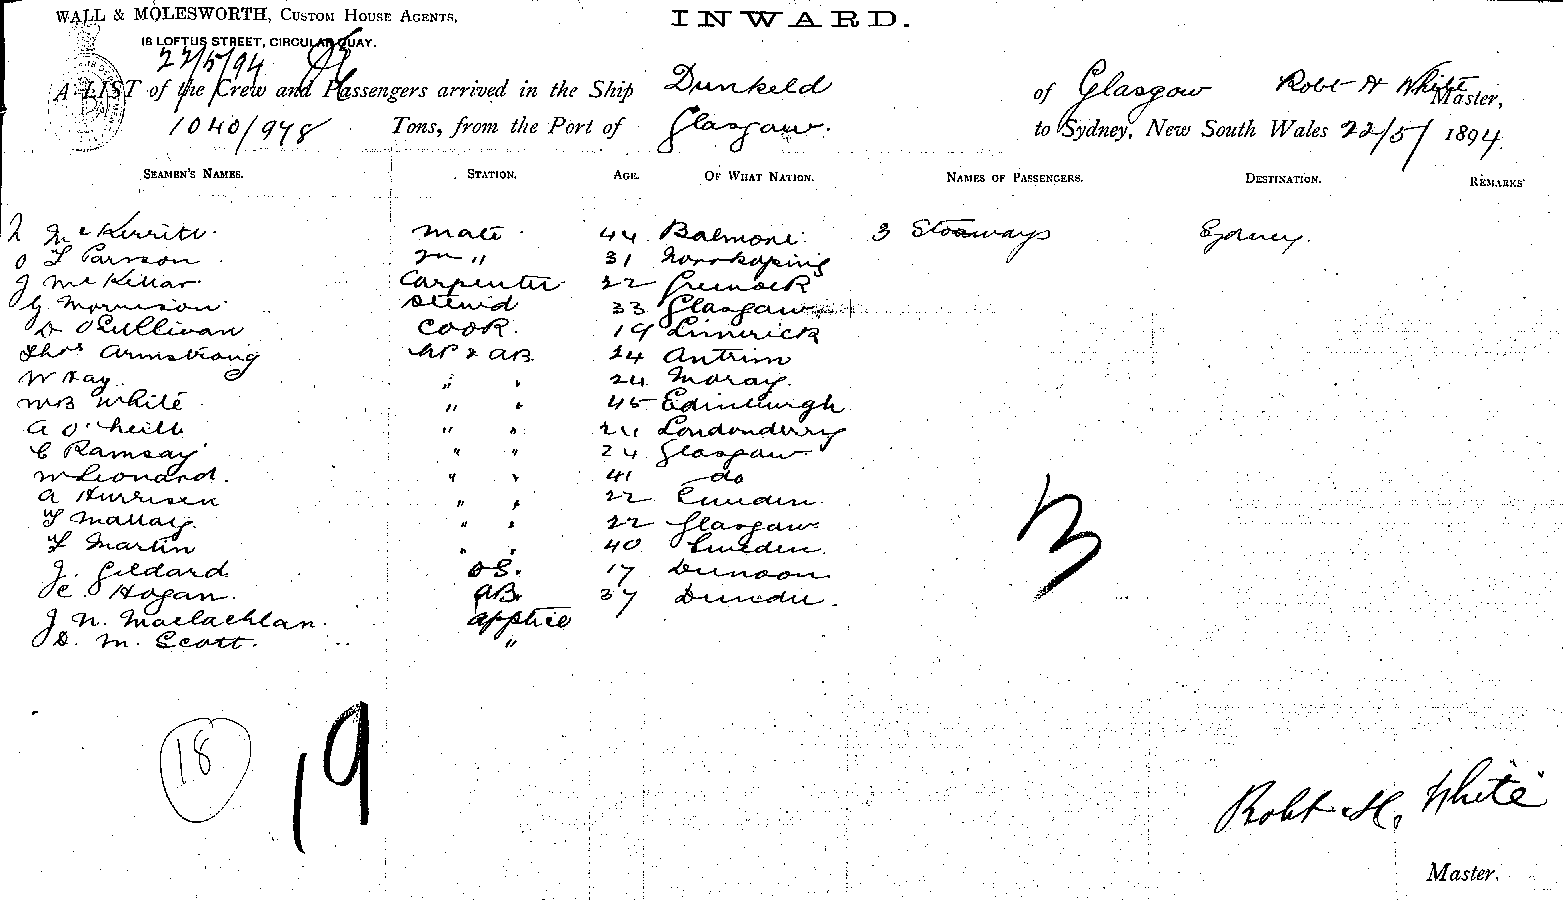 WALL & MOLESWORTH, CUSTOM HOUSE AGENTS,
18 LOFTUS STREET, CIRCULAR QUAY.
INWARD.
22/5/94
A LIST of the Crew and Passengers arrived in the Ship Dunkeld of Glasgow Robt H White Master,
1040/978 Tons, from the Port of Glasgow. to Sydney, New South Wales 22/5/ 1894
SEAMEN'S NAMES. STATION. AGE. OF WHAT NATION. NAMES OF PASSENGERS. DESTINATION. REMARKS
Mc Kerrill mate 44 3 Stowaways Sydney.
O L Parsson 2n " 31 Norrkoping
J McKellar Carpenter 22 Greenock
G Morrison Stewd 33 Glasgow
D O'Sullivan Cook. 19 Limerick
Thos Armstrong & AB 24 Antrim
W Hay " " 24 Moray.
WB White " " 45 Edinburgh
A O'Neill " " 24 Londonderry
C Ramsay " " 24 Glasgow
W Leonard. " " 41 do
A " " 22 Sweden
" " 22 Glasgow
Martin " " 40 Sweden.
J. Geldard OS. 17 Dunoon
Hogan. AB. 37 Dundee.
J N. Maclachlan. apptice
D. M. Scott. "
3
18
19
Robt H. White
Master.